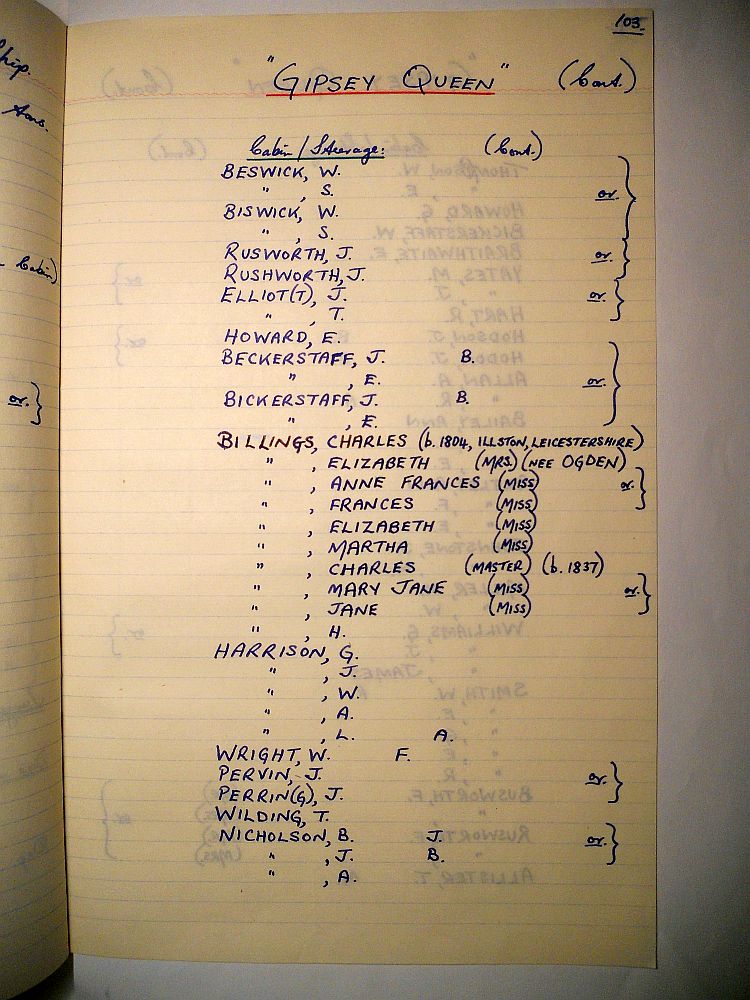 103.
"GIPSEY QUEEN" (Cont.)
Cabin/Steerage: (Cont.)
BESWICK, W.
" , S. or.
BISWICK, W.
" , S.
RUSWORTH, J. or.
RUSHWORTH, J.
ELLIOT(T), J. or.
" , T.
HOWARD, E.
BECKERSTAFF, J. B.
" , E. or.
BICKERSTAFF, J. B.
" , E.
BILLINGS, CHARLES (b. 1804, ILLSTON, LEICESTERSHIRE)
" , ELIZABETH (MRS.) (NEE OGDEN)
" , ANNE FRANCES (MISS) or.
" , FRANCES (MISS)
" , ELIZABETH (MISS)
" , MARTHA (MISS)
" , CHARLES (MASTER) (b. 1837)
" , MARY JANE (MISS) or.
" , JANE (MISS)
" , H.
HARRISON, G.
" , J.
" , W.
" , A.
" , L. A.
WRIGHT, W. F.
PERVIN, J. or.
PERRIN(G), J.
WILDING, T.
NICHOLSON, B. J. or.
" , J. B.
" , A.